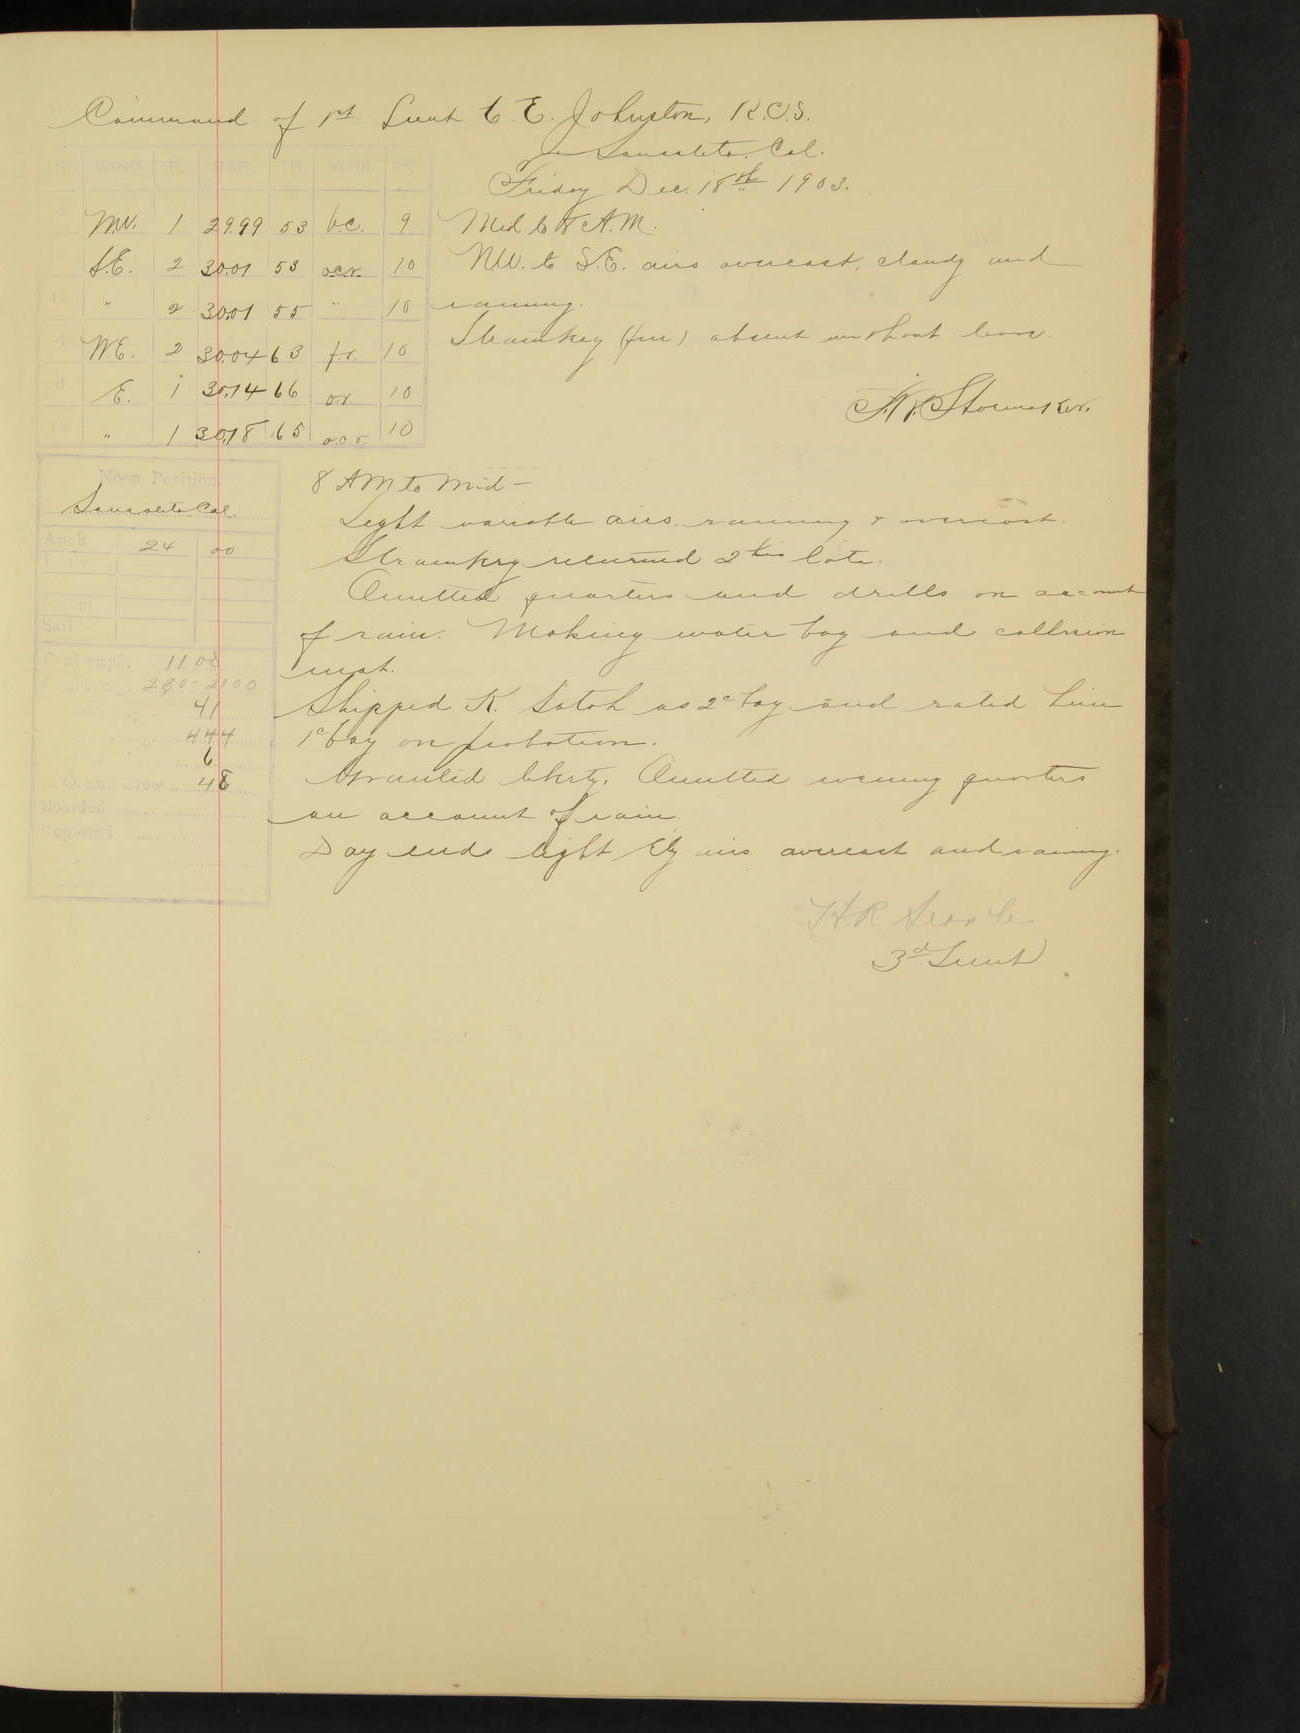 Command of 1st Lieut C. E. Johnston, R.C.S.
Sausalito, Cal.
Friday Dec. 18th 1903.
WIND F. BAR. TH WEATH.
NW. 1 29.99 53 b.c. 9
S.E. 2 30.01 53 o.c.r. 10
" 2 30.01 55 " 10
NE. 2 30.04 63 f.r. 10
E. 1 30.14 66 o.r. 10
" 1 30.18 65 o.c.r. 10
Mid to 8 A.M.
NW. to S.E. airs overcast, cloudy and
raining.
(fm) absent without leave.
8 AM to Mid -
Light variable airs, raining & overcast.
returned 2 hrs late.
Omitted quarters and drills on account
of rain. Making water bag and collision
mat.
Shipped K. Satoh as 2c boy and rated him
1c boy on probation.
Granted liberty. Omitted evening quarters
on account of rain.
Day ends light E'ly airs overcast and raining.
H.R.
3d Lieut
Noon Position
Sausalito Cal.
Anch 24 00
Sail
1108
2100
41
444
6
O. and Crew 48
Boarded
Reported